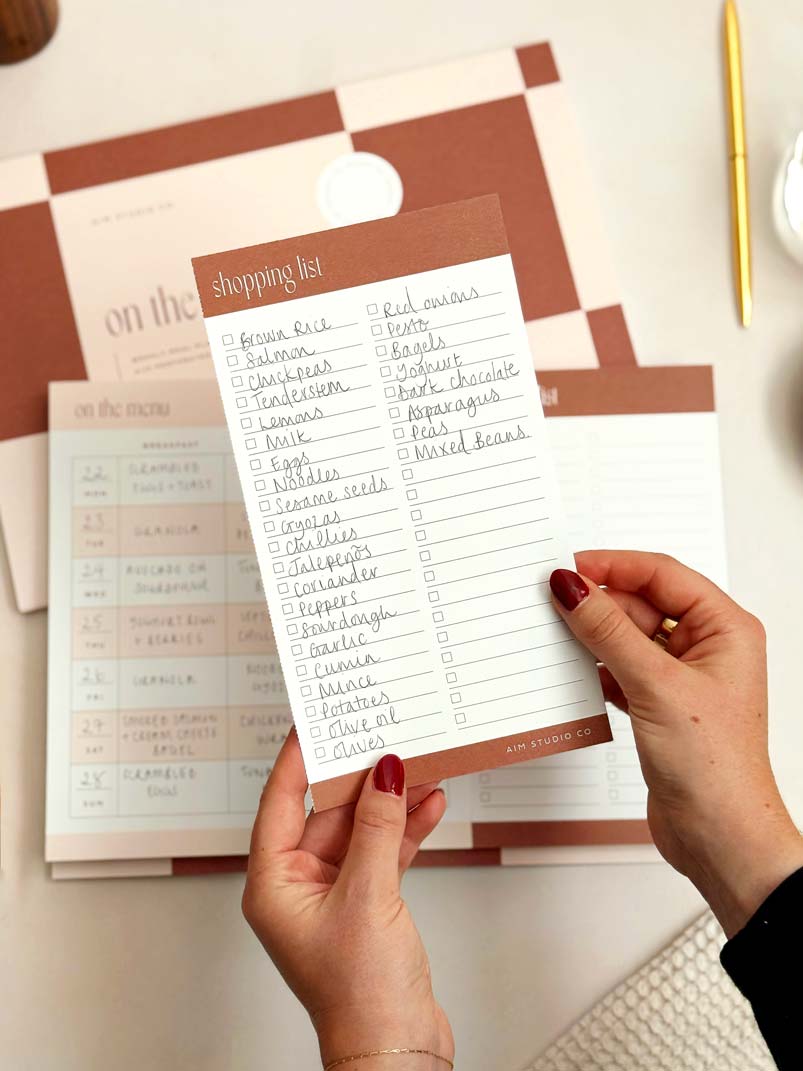 AIM STUDIO CO
on the
shopping list
Brown Rice
Salmon
Chickpeas
Tenderstem
Lemons
Milk
Eggs
Noodles
Sesame seeds
Gyozas
Chillies
Jalepeños
Coriander
Peppers
Sourdough
Garlic
Cumin
Mince
Potatoes
Olive oil
Olives
Red onions
Pesto
Bagels
Yoghurt
Dark chocolate
Asparagus
Peas
Mixed Beans
AIM STUDIO CO
on the menu
BREAKFAST
22
MON
SCRAMBLED
EGGS + TOAST
23
TUE
GRANOLA
24
WED
AVOCADO ON
SOURDOUGH
25
THU
YOGHURT BOWL
+ BERRIES
26
FRI
GRANOLA
27
SAT
SMOKED SALMON
+ CREAM CHEESE
BAGEL
28
SUN
SCRAMBLED
EGGS